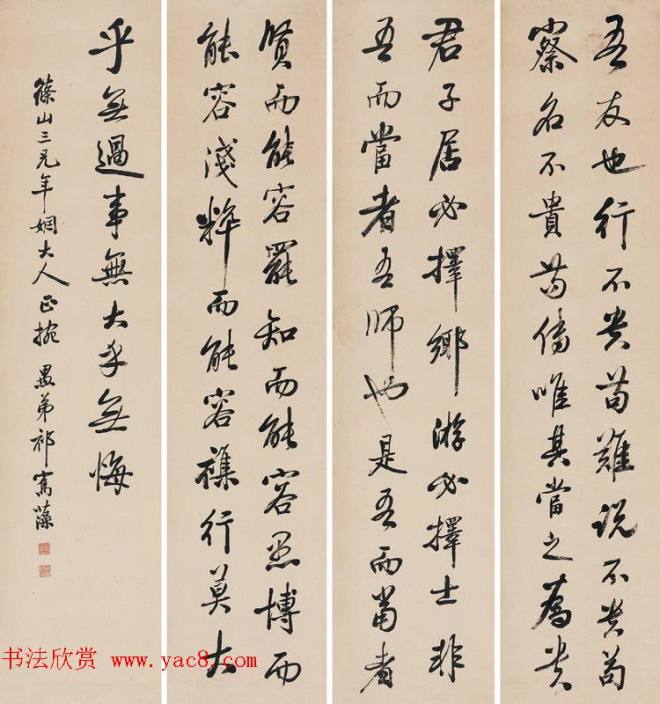 吾友也行不貴苟難說不貴苟
察名不貴苟傳唯其當之為貴
君子居必擇鄉游必擇士非
吾而當者吾師也是吾而當者
賢而能容罷知而能容愚博而
能容淺粹而能容雜行莫大
乎無過事無大乎無悔
篠山三兄年姻大人正捥 愚弟祁寯藻
书法欣赏 www.yac8.com